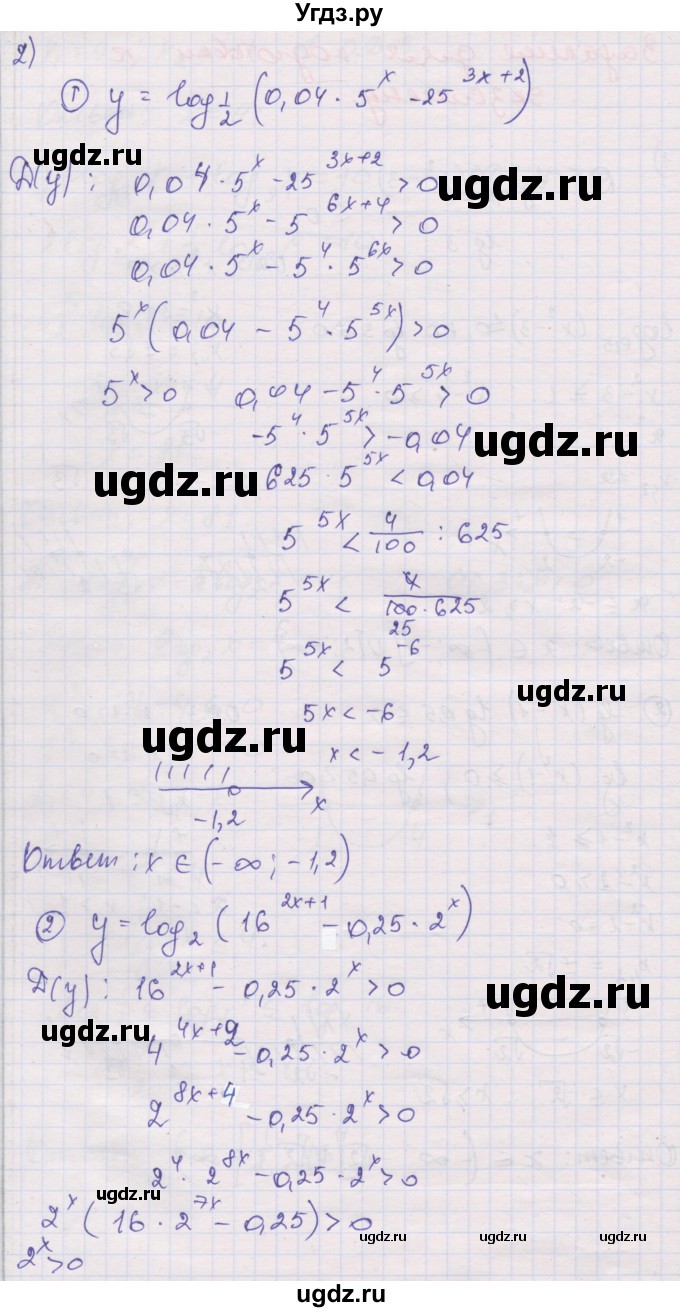 Угдз.ру
2)
① y = log_{1/2} (0,04 · 5^x - 25^{3x+2})
D(y): 0,04 · 5^x - 25^{3x+2} > 0
ugdz.ru
0,04 · 5^x - 5^{6x+4} > 0
0,04 · 5^x - 5^4 · 5^{6x} > 0
5^x (0,04 - 5^4 · 5^{5x}) > 0
5^x > 0 0,04 - 5^4 · 5^{5x} > 0
-5^4 · 5^{5x} > -0,04
ugdz.ru
ugdz.ru
625 · 5^{5x} < 0,04
5^{5x} < 4/100 : 625
5^{5x} < 4/(100 · 625)
25
5^{5x} < 5^{-6}
ugdz.ru
5x < -6
ugdz.ru
x < -1,2
x
-1,2
Ответ: x ∈ (-∞; -1,2)
② y = log_2 (16^{2x+1} - 0,25 · 2^x)
D(y): 16^{2x+1} - 0,25 · 2^x > 0
ugdz.ru
4^{4x+2} - 0,25 · 2^x > 0
2^{8x+4} - 0,25 · 2^x > 0
2^4 · 2^{8x} - 0,25 · 2^x > 0
ugdz.ru
2^x (16 · 2^{7x} - 0,25) > 0
ugdz.ru
ugdz.ru
2^x > 0
ugdz.ru